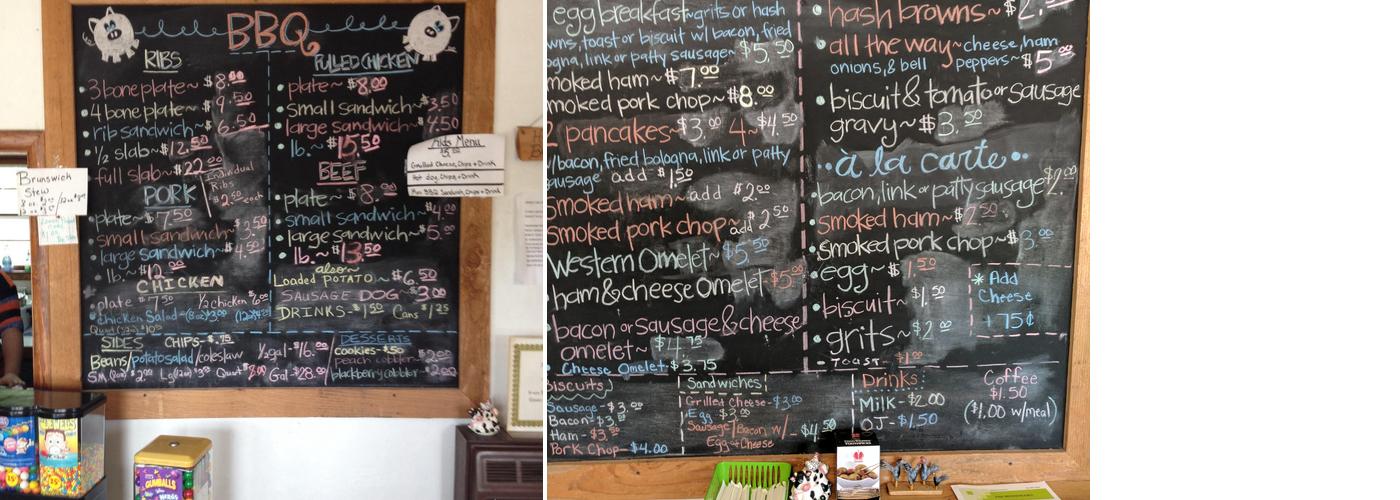 BBQ
RIBS
3 bone plate~ $8.00
4 bone plate~ $9.50
rib sandwich~ $6.50
1/2 slab~ $12.50
full slab~ $22.00
Individual
Ribs
$2.50 each
PORK
plate~ $7.50
small sandwich~ $3.50
large sandwich~ $4.50
lb.~ $12.00
CHICKEN
plate $7.50 1/2 chicken $6.00
chicken Salad
SIDES CHIPS-$.75
Beans/potato salad/coleslaw
Quart $8.00
1/2 gal-$16.00
Gal-$28.00
PULLED CHICKEN
plate~ $8.00
small sandwich~ $3.50
large sandwich~ $4.50
lb.~ $15.50
BEEF
plate~ $8.00
small sandwich~ $4.00
large sandwich~ $5.00
lb.~ $13.50
also~
Loaded POTATO~ $6.50
SAUSAGE DOG~ $3.00
DRINKS-$1.50 Cans $1.25
DESSERTS
cookies-$.50
peach cobbler-$2.00
blackberry cobbler-$2.00
Brunswick
Stew
Kids Menu
Grilled Cheese, Chips & Drink
Hot dog, Chips & Drink
Mini BBQ Sandwich, Chips & Drink
NERDS
GUMBALLS
egg breakfast~ grits or hash
toast or biscuit w/ bacon, fried
link or patty sausage~ $5.50
smoked ham~ $7.00
smoked pork chop~ $8.00
2 pancakes~ $3.00 4~ $4.50
w/bacon, fried bologna, link or patty
sausage add $1.50
smoked ham~ add $2.00
smoked pork chop~ add $2.50
western Omelet~ $5.50
ham & cheese Omelet $5.00
bacon or sausage & cheese
omelet~ $4.75
Cheese Omelet-$3.75
hash browns~ $2.
all the way~ cheese, ham
onions, & bell peppers~ $5.00
biscuit & tomato or sausage
gravy~ $3.50
à la carte
bacon, link or patty sausage $2.00
smoked ham~ $2.50
smoked pork chop~ $3.00
egg~ $1.50
biscuit~ $1.50
grits~ $2.00
TOAST- $1.00
* Add
Cheese
+75¢
Biscuits
Sausage-$3.00
Bacon-$3.00
Ham-$3.50
Pork Chop-$4.00
Sandwiches
Grilled Cheese-$3.00
Egg-$3.00
Sausage/Bacon w/ - $4.50
Egg & Cheese
Drinks:
Milk-$2.00
OJ-$1.50
Coffee
$1.50
($1.00 w/meal)